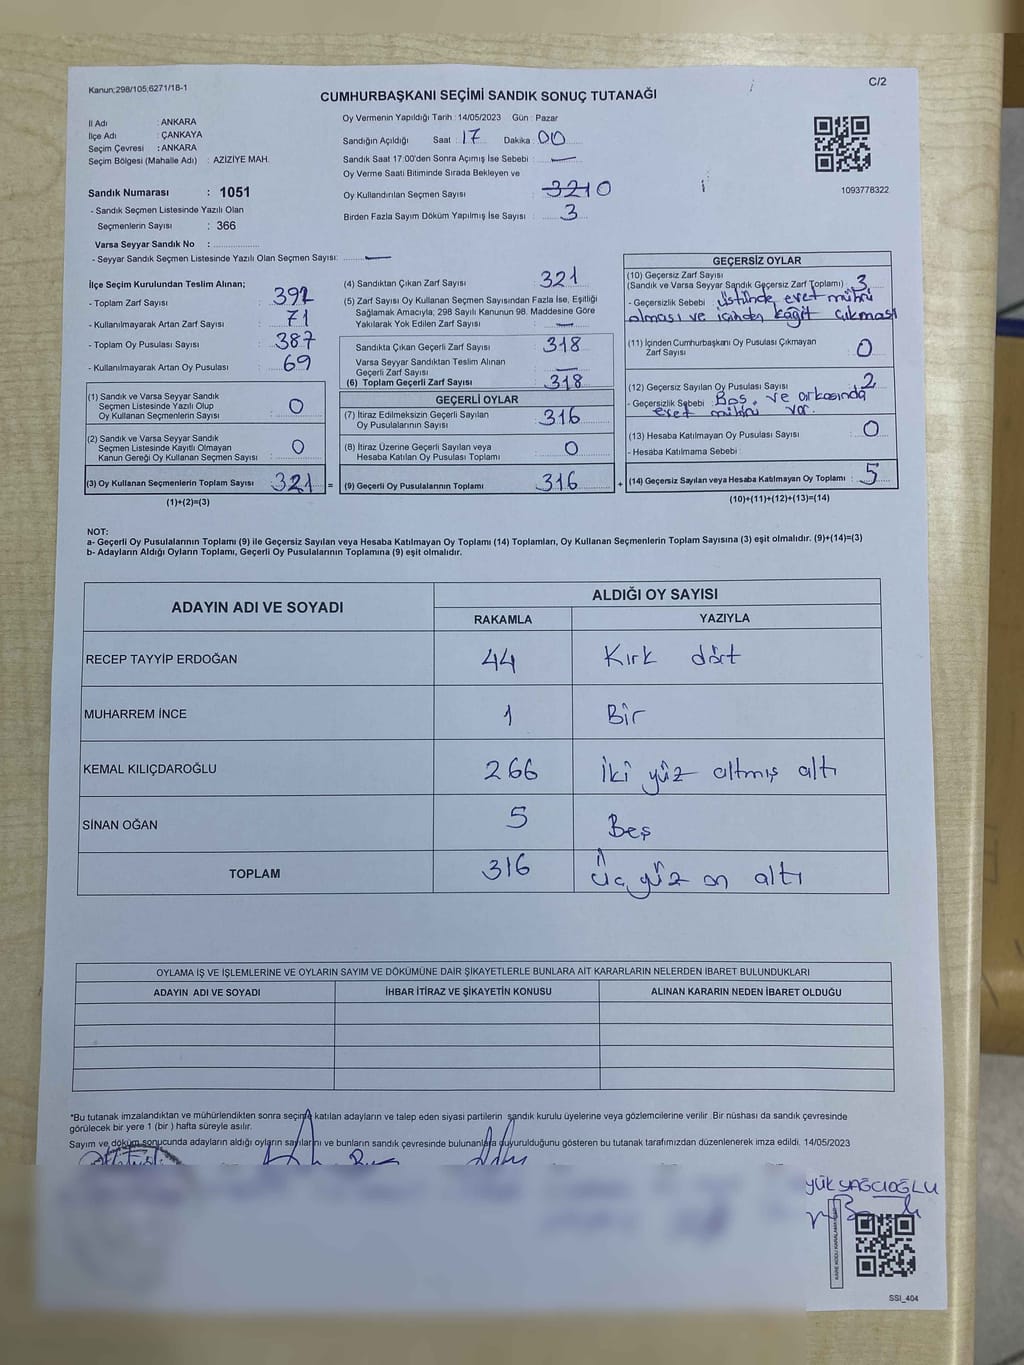 Kanun;298/105;6271/18-1
C/2
CUMHURBAŞKANI SEÇİMİ SANDIK SONUÇ TUTANAĞI
İl Adı : ANKARA
İlçe Adı : ÇANKAYA
Seçim Çevresi : ANKARA
Seçim Bölgesi (Mahalle Adı) : AZİZİYE MAH.
Sandık Numarası : 1051
- Sandık Seçmen Listesinde Yazılı Olan
Seçmenlerin Sayısı : 366
Varsa Seyyar Sandık No :
- Seyyar Sandık Seçmen Listesinde Yazılı Olan Seçmen Sayısı: —
Oy Vermenin Yapıldığı Tarih : 14/05/2023 Gün : Pazar
Sandığın Açıldığı Saat : 17 Dakika : 00
Sandık Saat 17:00'den Sonra Açımış İse Sebebi : —
Oy Verme Saati Bitiminde Sırada Bekleyen ve
Oy Kullandırılan Seçmen Sayısı : 0
Birden Fazla Sayım Döküm Yapılmış İse Sayısı : 3
1093778322
İlçe Seçim Kurulundan Teslim Alınan;
- Toplam Zarf Sayısı : 392
- Kullanılmayarak Artan Zarf Sayısı : 71
- Toplam Oy Pusulası Sayısı : 387
- Kullanılmayarak Artan Oy Pusulası : 69
(1) Sandık ve Varsa Seyyar Sandık
Seçmen Listesinde Yazılı Olup
Oy Kullanan Seçmenlerin Sayısı : 0
(2) Sandık ve Varsa Seyyar Sandık
Seçmen Listesinde Kayıtlı Olmayan
Kanun Gereği Oy Kullanan Seçmen Sayısı : 0
(3) Oy Kullanan Seçmenlerin Toplam Sayısı : 321 =
(1)+(2)=(3)
(4) Sandıktan Çıkan Zarf Sayısı : 321
(5) Zarf Sayısı Oy Kullanan Seçmen Sayısından Fazla İse, Eşitliği
Sağlamak Amacıyla; 298 Sayılı Kanunun 98. Maddesine Göre
Yakılarak Yok Edilen Zarf Sayısı : —
Sandıkta Çıkan Geçerli Zarf Sayısı : 318
Varsa Seyyar Sandıktan Teslim Alınan
Geçerli Zarf Sayısı : —
(6) Toplam Geçerli Zarf Sayısı : 318
GEÇERLİ OYLAR
(7) İtiraz Edilmeksizin Geçerli Sayılan
Oy Pusulalarının Sayısı : 316
(8) İtiraz Üzerine Geçerli Sayılan veya
Hesaba Katılan Oy Pusulası Toplamı : 0
(9) Geçerli Oy Pusulalarının Toplamı : 316 +
GEÇERSİZ OYLAR
(10) Geçersiz Zarf Sayısı
(Sandık ve Varsa Seyyar Sandık Geçersiz Zarf Toplamı) : 3
- Geçersizlik Sebebi : üstünde evet mührü
olması ve içinden kağıt çıkması
(11) İçinden Cumhurbaşkanı Oy Pusulası Çıkmayan
Zarf Sayısı : 0
(12) Geçersiz Sayılan Oy Pusulası Sayısı : 2
- Geçersizlik Sebebi : Boş, ve arkasında
evet mührü var.
(13) Hesaba Katılmayan Oy Pusulası Sayısı : 0
- Hesaba Katılmama Sebebi :
(14) Geçersiz Sayılan veya Hesaba Katılmayan Oy Toplamı : 5
(10)+(11)+(12)+(13)=(14)
NOT:
a- Geçerli Oy Pusulalarının Toplamı (9) ile Geçersiz Sayılan veya Hesaba Katılmayan Oy Toplamı (14) Toplamları, Oy Kullanan Seçmenlerin Toplam Sayısına (3) eşit olmalıdır. (9)+(14)=(3)
b- Adayların Aldığı Oyların Toplamı, Geçerli Oy Pusulalarının Toplamına (9) eşit olmalıdır.
ADAYIN ADI VE SOYADI ALDIĞI OY SAYISI
RAKAMLA YAZIYLA
RECEP TAYYİP ERDOĞAN 44 Kırk dört
MUHARREM İNCE 1 Bir
KEMAL KILIÇDAROĞLU 266 İki yüz altmış altı
SİNAN OĞAN 5 Beş
TOPLAM 316 Üç yüz on altı
OYLAMA İŞ VE İŞLEMLERİNE VE OYLARIN SAYIM VE DÖKÜMÜNE DAİR ŞİKAYETLERLE BUNLARA AİT KARARLARIN NELERDEN İBARET BULUNDUKLARI
ADAYIN ADI VE SOYADI İHBAR İTİRAZ VE ŞİKAYETİN KONUSU ALINAN KARARIN NEDEN İBARET OLDUĞU
*Bu tutanak imzalandıktan ve mühürlendikten sonra seçime katılan adayların ve talep eden siyasi partilerin sandık kurulu üyelerine veya gözlemcilerine verilir. Bir nüshası da sandık çevresinde
görülecek bir yere 1 (bir) hafta süreyle asılır.
Sayım ve döküm sonucunda adayların aldığı oyların sayılarını ve bunların sandık çevresinde bulunanlara duyurulduğunu gösteren bu tutanak tarafımızdan düzenlenerek imza edildi. 14/05/2023
YÜKYAĞCIOĞLU
SSI_404